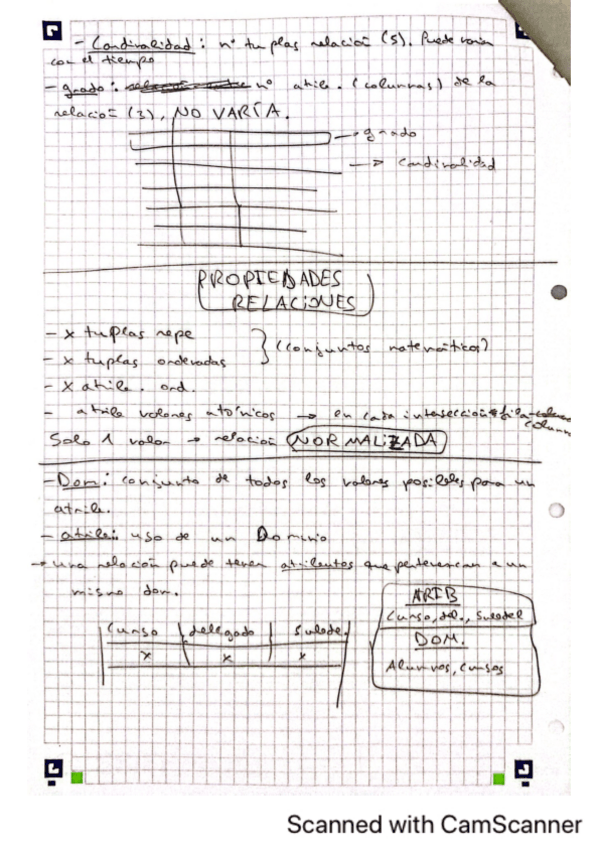 - Cardinalidad : nº tuplas relación (5). Puede varia
con el tiempo
- grado : nº atrib. (columnas) de la
relación (3), NO VARÍA.
→ grado
→ Cardinalidad
PROPIEDADES
RELACIONES
- x tuplas repe
- x tuplas ordenadas
} (conjuntos matemáticos)
- x atrib. ord.
- atrib valores atómicos → en cada intersección fila-columna
columna
Solo 1 valor → relación NORMALIZADA
- Dom: conjunto de todos los valores posibles para un
atrib.
- atrib: uso de un Dominio
→ una relación puede tener atributos que pertenezcan a un
mismo dom.
ATRIB
Curso, del., Subdel
DOM.
Alumnos, cursos
Curso | delegado | Subde.
x x x
Scanned with CamScanner